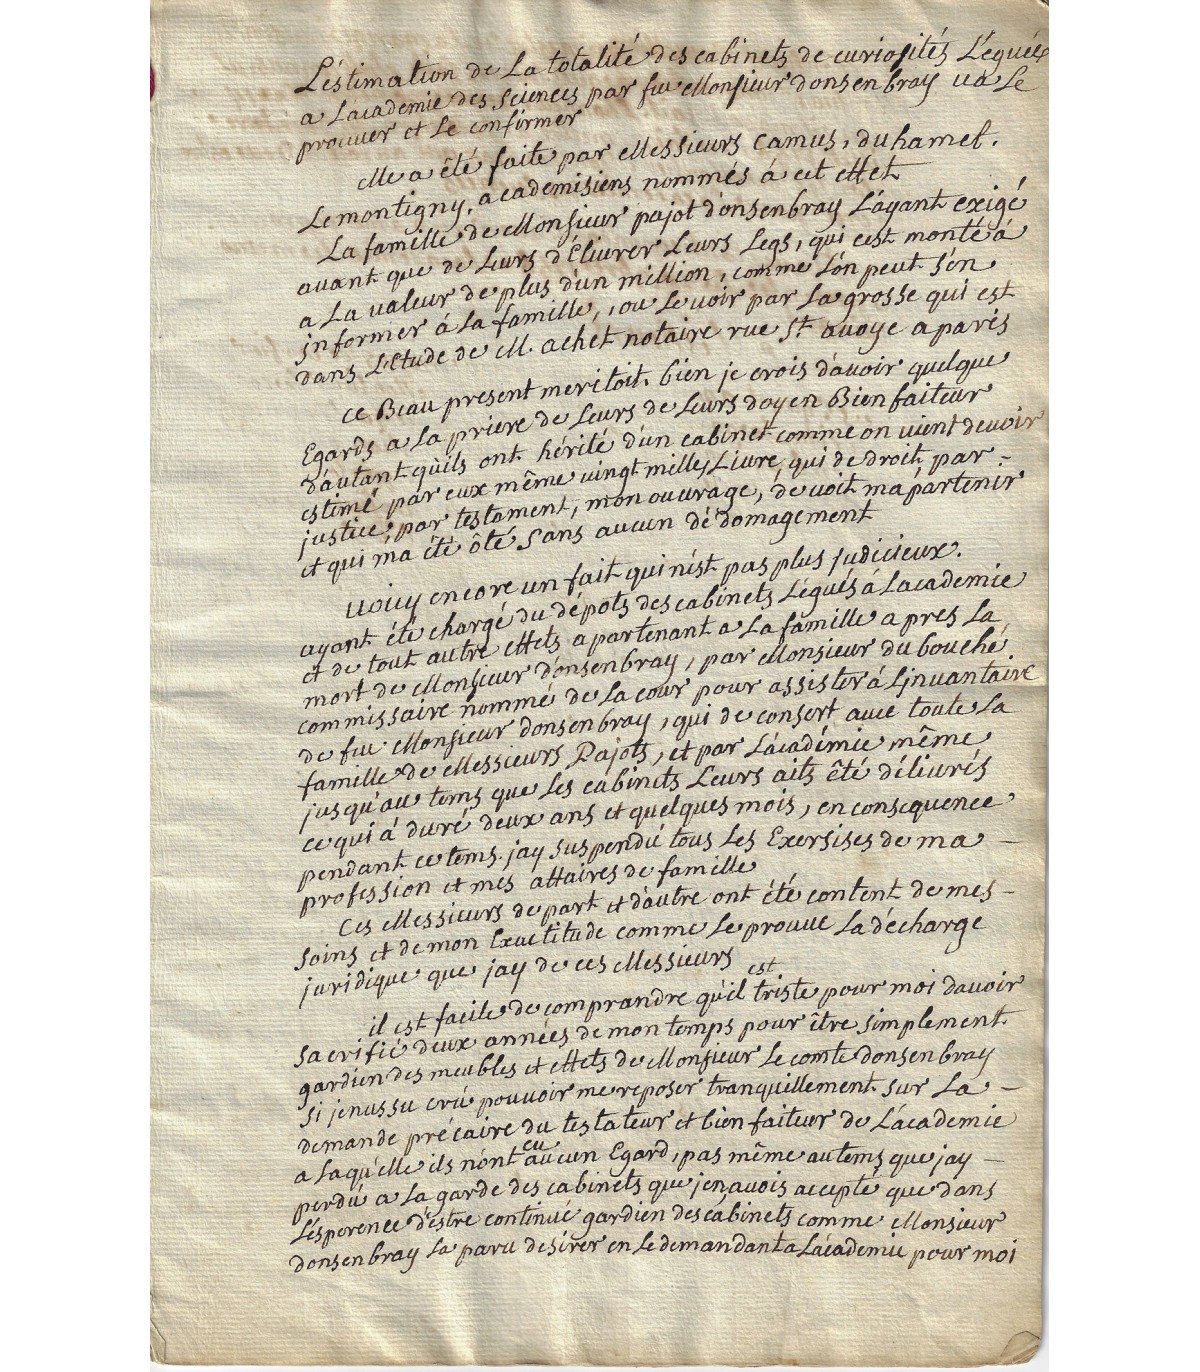 Léstimation de La totalité des cabinets de curiosités Léguéé
a Lacademie des Sciences par fu Monsieur donsenbray va Le
prouuer et Le confirmer
elle a êté faite par Messieurs Camus, duhamel.
Lemontigny, academisiens nommés á cet effet
La famille de Monsieur pajot d'onsenbray L'ayant exigé
auant que de Leurs d'Eliurer Leurs Legs, qui cest monté á
a La ualeur de plus d'un million, comme L'on peut s'en
jnformer á La famille, ou Le uoir par La grosse qui est
dans L'Etude de M. achet notaire rue St. auoye a paris
ce Beau present meritoit bien je crois d'auoir quelque
Egards a La priere de Leurs de Leurs doyen Bienfaiteur
d'autant qu'ils ont hérité d'un cabinet comme on uient deuoir
estimé par eux même uingt milles Liure, qui de droit par -
justice, par testament, mon ouurage, de uoit ma'partenir
et qui m'a été ôté Sans aucun dé domagement
uoicy encore un fait qui nést pas plus judicieux.
ayant été chargé du dépots des cabinets Légués á Lacademie
et de tout autre effets apartenant a La famille apres La
mort de Monsieur d'onsenbray, par Monsieur du bouché
commissaire nommé de La cour pour assister á L'jnuantaire
de fu Monsieur donsenbray, qui de consert auec toute La
famille de Messieurs Pajots, et par L'académie même
jusqu'au tems que Les cabinets Leurs aits êté déliurés
ce qui á duré deux ans et quelques mois, en consequence
pendant ce tems. jay suspendu tous Les Exersises de ma -
profession et mes affaires de famille
Ces Messieurs de part et d'autre ont été content de mes -
soins et de mon Exactitude comme Le prouue La décharge
juridique que jay de ces Messieurs
il est facile de comprandre qu'il est triste pour moi dauoir
sacrifié deux années de mon temps pour être simplement
gardien des meubles et effets de Monsieur Le comte donsenbray
si jenussu crú pouuoir me reposer tranquillement sur La -
demande précaire du testateur et bien faiteur de L'academie
a Laqu'elle ils n'ont eu aucun Egard, pas même au tems que jay -
perdu a La garde des cabinets que jen,auois acepté que dans
L'ésperence d'estre continué gardien des cabinets comme Monsieur
donsenbray La paru desirer en Le demandant a L'académie pour moi